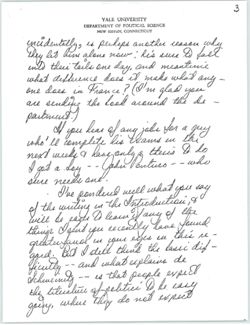 3
YALE UNIVERSITY
DEPARTMENT OF POLITICAL SCIENCE
NEW HAVEN, CONNECTICUT
incidentally, is perhaps another reason why
they let him alone now: he's sure to fall
into their toils one day, and meantime
what difference does it make what any-
one does in France? (I'm glad you
are sending the book around the de-
partment.)
If you hear of any job for a guy
who'll complete his exams in the
next weeks & have only a thesis to do
I got a boy -- John -- who
sure needs one.
I've pondered well what you say
of the writing in the Introduction, &
will be to learn if any of the
things I sent you recently have found
greater in your eyes in this re-
gard. But I still think the basic dif-
ficulty -- and what explains de
-- is that people expect
the literature of politics to be easy
going, where they do not expect